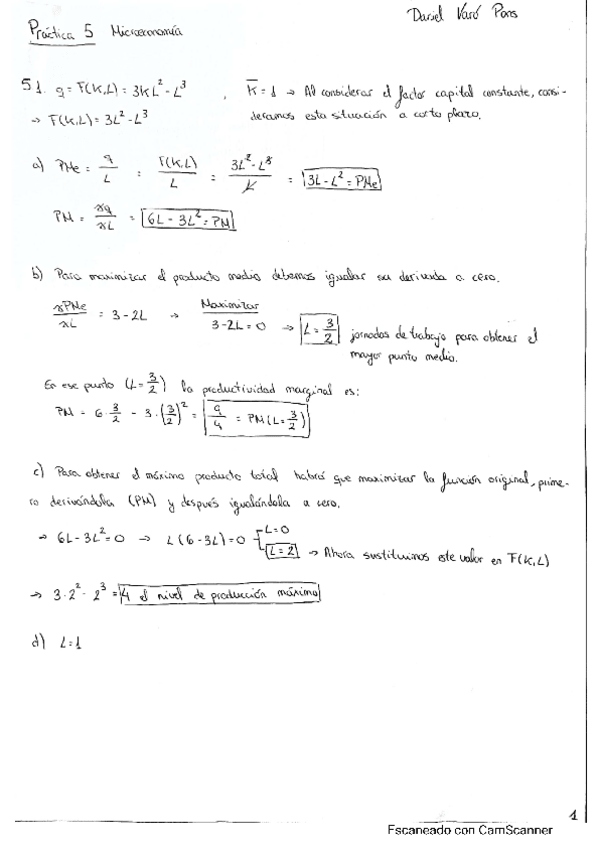 Daniel Varó Pons
Práctica 5 Microeconomía
5.1. q = F(K,L) = 3KL² - L³ , K̄ = 1 → Al considerar el factor capital constante, consi-
→ F(K,L) = 3L² - L³ deramos esta situación a corto plazo.
a) PMe = q/L = F(K,L)/L = 3L² - L³/L = 3L - L² = PMe
PM = ∂q/∂L = 6L - 3L² = PM
b) Para maximizar el producto medio debemos igualar su derivada a cero.
∂PMe/∂L = 3 - 2L → Maximizar 3 - 2L = 0 → L = 3/2 jornadas de trabajo para obtener el
mayor punto medio.
En ese punto (L = 3/2) la productividad marginal es:
PM = 6·3/2 - 3·(3/2)² = 9/4 = PM(L = 3/2)
c) Para obtener el máximo producto total habrá que maximizar la función original, prime-
ro derivándola (PM) y después igualándola a cero.
→ 6L - 3L² = 0 → L(6 - 3L) = 0 L = 0
L = 2 → Ahora sustituimos este valor en F(K,L)
→ 3·2² - 2³ = 4 el nivel de producción máximo
d) L = 1
1
Escaneado con CamScanner